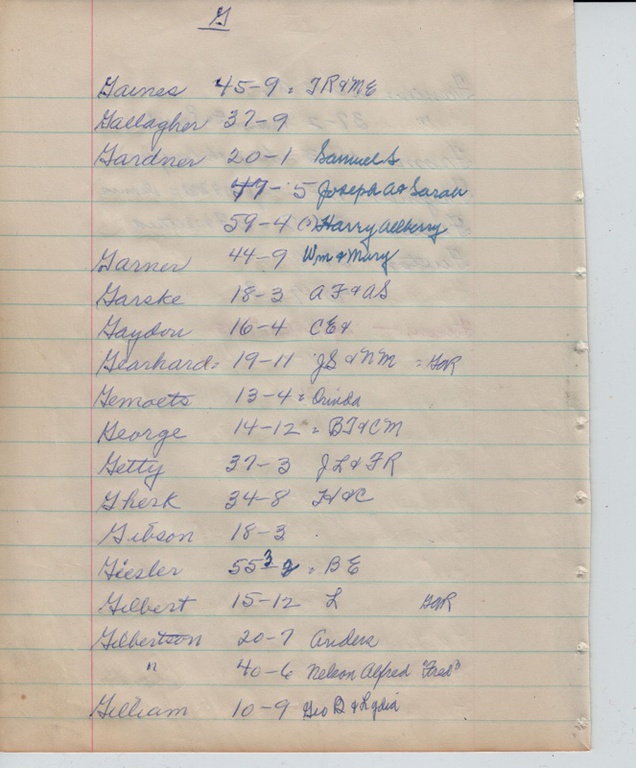 G
Gaines 45-9 = TR & ME
Gallagher 37-9
Gardner 20-1 Samuel S
47-5 Joseph A & Sarah
59-4 (?) Harry allberry
Garner 44-9 Wm & Mary
Garske 18-3 AF & AS
Gaydou 16-4 CE &
Gearhard = 19-11 JS & NM = GAR
Gemoets 13-4 = Orinda
George 14-12 = BT & CM
Getty 37-3 JL & FR
Gherk 34-8 H & C
Gibson 18-3
Giesler 55 3 = BE
Gilbert 15-12 L GAR
Gilbertson 20-7 Anders
" 40-6 Nelson Alfred "Fred"
Gilliam 10-9 Geo B & Lydia